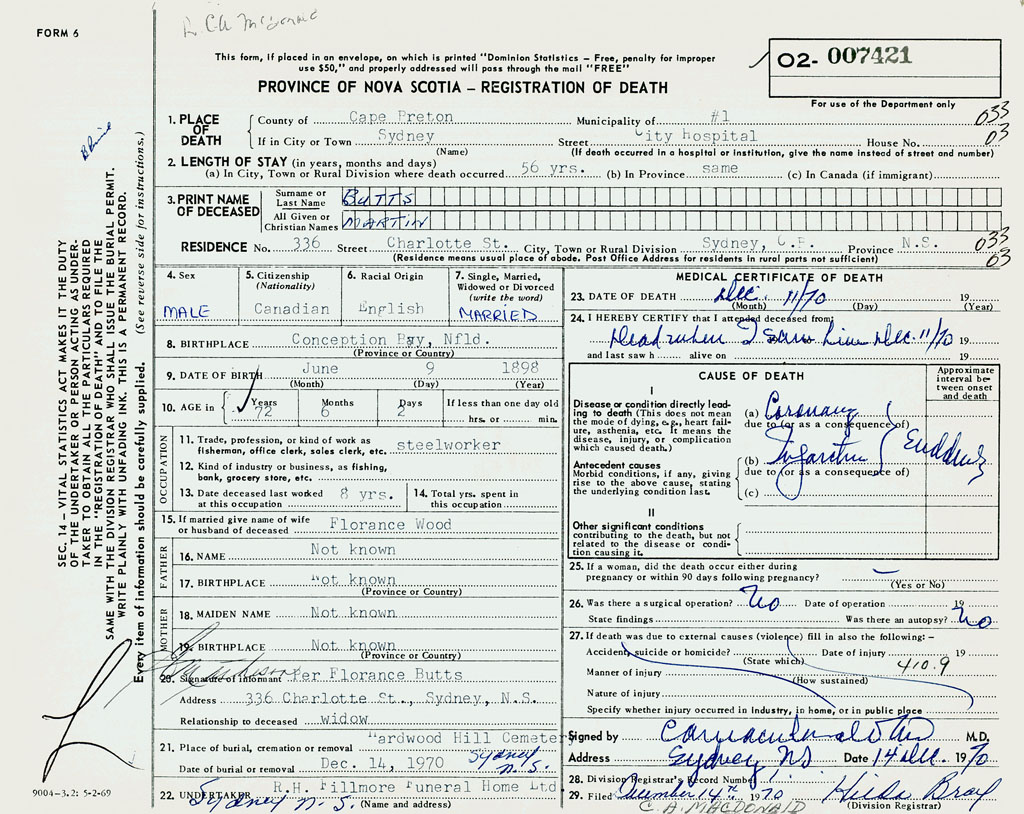 FORM 6
C.A. McDonald
This form, if placed in an envelope, on which is printed "Dominion Statistics – Free, penalty for improper
use $50," and properly addressed will pass through the mail "FREE"
PROVINCE OF NOVA SCOTIA – REGISTRATION OF DEATH
02- 007421
For use of the Department only
1. PLACE OF DEATH
County of Cape Breton Municipality of #1 033
If in City or Town Sydney Street City hospital House No. 03
(Name) (If death occurred in a hospital or institution, give the name instead of street and number)
2. LENGTH OF STAY (in years, months and days)
(a) In City, Town or Rural Division where death occurred 56 yrs. (b) In Province same (c) In Canada (if immigrant)
3. PRINT NAME OF DECEASED
Surname or Last Name BUTTS
All Given or Christian Names MARTIN
RESIDENCE No. 336 Street Charlotte St. City, Town or Rural Division Sydney, C.B. Province N.S. 033
(Residence means usual place of abode. Post Office Address for residents in rural parts not sufficient) 03
4. Sex MALE
5. Citizenship (Nationality) Canadian
6. Racial Origin English
7. Single, Married, Widowed or Divorced (write the word) MARRIED
8. BIRTHPLACE Conception Bay, Nfld.
(Province or Country)
9. DATE OF BIRTH June 9 1898
(Month) (Day) (Year)
10. AGE in Years 72 Months 6 Days 2 If less than one day old hrs. or min.
OCCUPATION
11. Trade, profession, or kind of work as
fisherman, office clerk, sales clerk, etc. steelworker
12. Kind of industry or business, as fishing,
bank, grocery store, etc.
13. Date deceased last worked at this occupation 8 yrs.
14. Total yrs. spent in this occupation
15. If married give name of wife
or husband of deceased Florance Wood
FATHER
16. NAME Not known
17. BIRTHPLACE Not known
(Province or Country)
MOTHER
18. MAIDEN NAME Not known
19. BIRTHPLACE Not known
(Province or Country)
20. Signature of informant Per Florance Butts
Address 336 Charlotte St., Sydney, N.S.
Relationship to deceased widow
21. Place of burial, cremation or removal Hardwood Hill Cemetery
Sydney N.S.
Date of burial or removal Dec. 14, 1970
22. UNDERTAKER R.H. Fillmore Funeral Home Ltd
Sydney N.S. (Name and address)
MEDICAL CERTIFICATE OF DEATH
23. DATE OF DEATH Dec. 11/70 19
(Month) (Day) (Year)
24. I HEREBY CERTIFY that I attended deceased from:
Dead when I saw him Dec. 11/70 19
and last saw h alive on 19
CAUSE OF DEATH
Approximate interval between onset and death
I
Disease or condition directly leading to death (This does not mean the mode of dying, e.g., heart failure, asthenia, etc. It means the disease, injury, or complication which caused death.)
(a) Coronary
due to (or as a consequence of)
Antecedent causes
Morbid conditions, if any, giving rise to the above cause, stating the underlying condition last.
(b) Infarction
due to (or as a consequence of)
(c)
II
Other significant conditions
contributing to the death, but not related to the disease or condition causing it.
25. If a woman, did the death occur either during
pregnancy or within 90 days following pregnancy? –
(Yes or No)
26. Was there a surgical operation? No Date of operation 19
State findings Was there an autopsy? No
27. If death was due to external causes (violence) fill in also the following: –
Accident, suicide or homicide? Date of injury 19
(State which) 410.9
Manner of injury
(How sustained)
Nature of injury
Specify whether injury occurred in industry, in home, or in public place
Signed by M.D.
Address Sydney NS Date 14 Dec. 1970
28. Division Registrar's Record Number
29. Filed December 14th 1970 Hilda Bray
C. A. MACDONALD (Division Registrar)
SEC. 14 – VITAL STATISTICS ACT MAKES IT THE DUTY
OF THE UNDERTAKER OR PERSON ACTING AS UNDER-
TAKER TO OBTAIN ALL THE PARTICULARS REQUIRED
IN THE "REGISTRATION OF DEATH" AND TO FILE THE
SAME WITH THE DIVISION REGISTRAR WHO SHALL ISSUE THE BURIAL PERMIT.
WRITE PLAINLY WITH UNFADING INK. THIS IS A PERMANENT RECORD.
Every item of information should be carefully supplied. (See reverse side for instructions.)
9004-3.2: 5-2-69